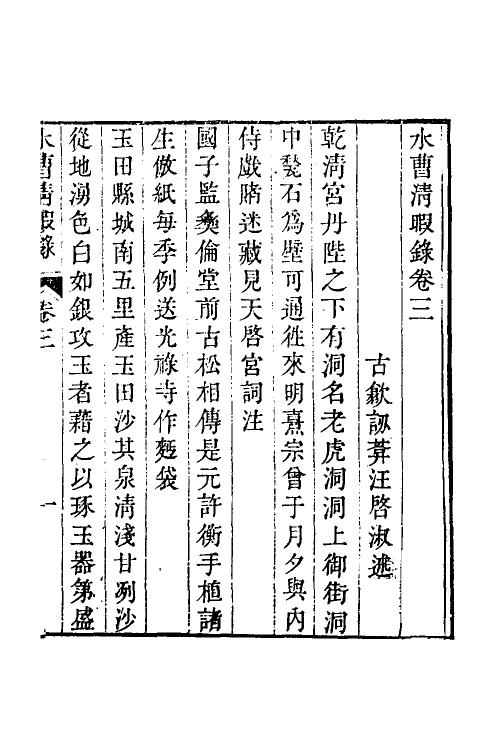 水曹淸暇錄卷三
古歙訒葊汪啓淑述
乾淸宮丹陛之下有洞名老虎洞洞上御街洞
中甃石爲壁可通徃來明熹宗曾于月夕與內
侍戲賭迷藏見天啓宮詞注
國子監彝倫堂前古松相傳是元許衡手植諸
生倣紙每季例送光祿寺作麪袋
玉田縣城南五里產玉田沙其泉淸淺甘冽沙
從地湧色白如銀攻玉者藉之以琢玉器第盛
水曹淸暇錄 卷三 一